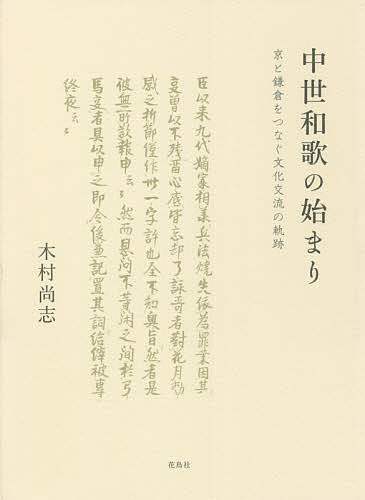 中世和歌の始まり
京と鎌倉をつなぐ文化交流の軌跡
臣以来九代嫡家相承兵法焼失依為罪業因其
事曽以不残留心底皆忘却了詠哥者對花月動
感之折節僅作卅一字許也全不知奥旨然者是
彼無所欲報申云々然而恩問不等閑之間於弓
馬事者具以申之即令俊兼記置其詞給縡被専
終夜云々
木村尚志
花鳥社